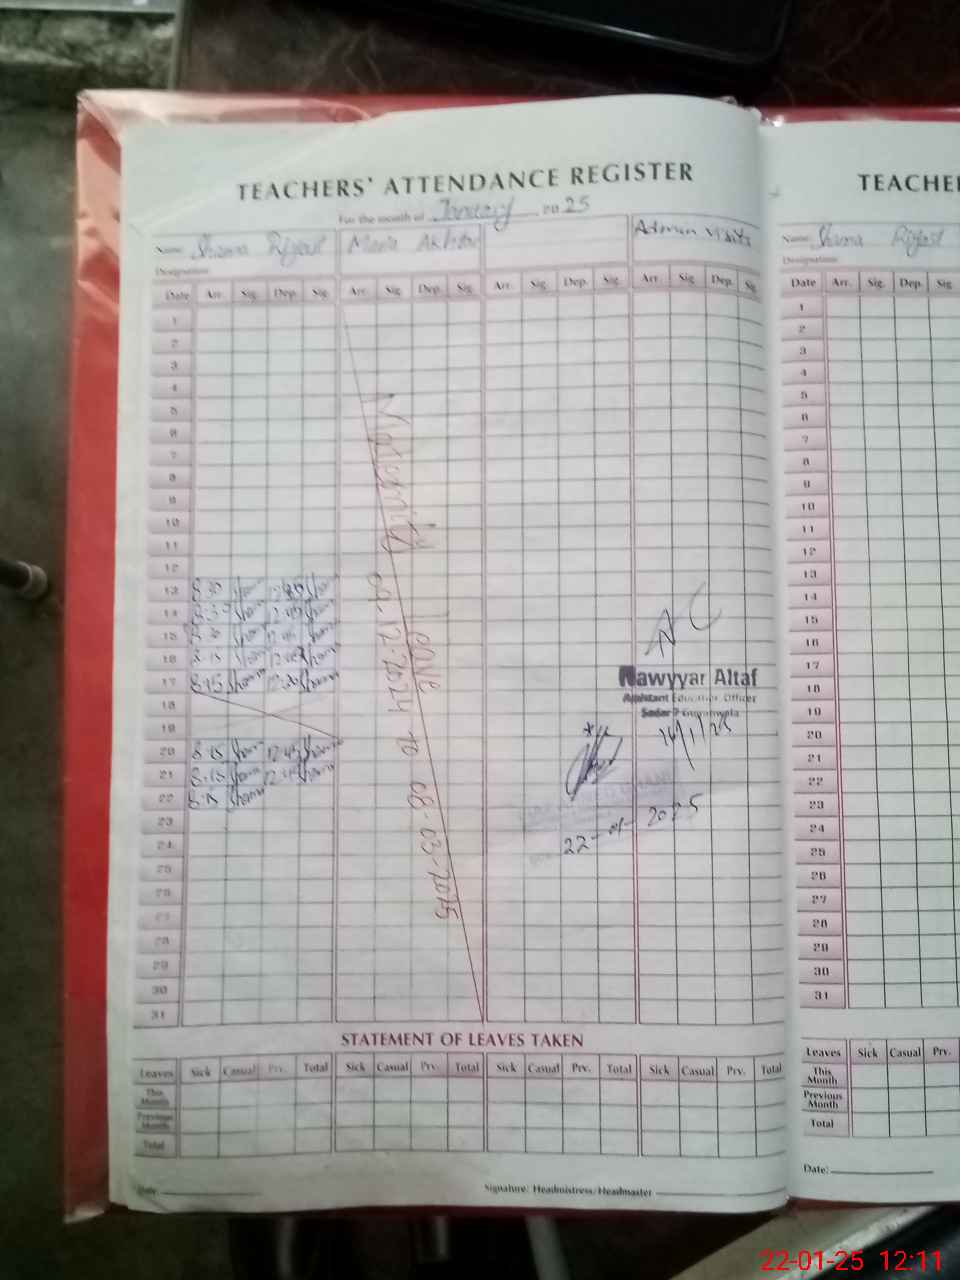 TEACHERS' ATTENDANCE REGISTER
For the month of January 2025
Name: Shama
Akhtar
Admin visits
Designation:
Date Arr. Sig. Dep. Sig. Arr. Sig. Dep. Sig. Arr. Sig. Dep. Sig. Arr. Sig. Dep. Sig.
1
2
3
4
5
6
7
8
9
10
11
12
13 8:30
14 8:30 12:45
15 8:30 12:45
16 8:15 12:45
17 8:15 12:30
18
19
20 8:15 12:45
21 8:15 12:45
22 8:15
23
24
25
26
27
28
29
30
31
Leave
12-2024 to 08-03-2025
Nawyyar Altaf
Assistant Education Officer
Sadar
14/1/25
22-01-2025
STATEMENT OF LEAVES TAKEN
Leaves Sick Casual Prv. Total Sick Casual Prv. Total Sick Casual Prv. Total Sick Casual Prv. Total
This Month
Previous Month
Total
Date:
Signature: Headmistress/Headmaster
TEACHE
Name: Shama
Designation:
Date Arr. Sig. Dep. Sig.
1
2
3
4
5
6
7
8
9
10
11
12
13
14
15
16
17
18
19
20
21
22
23
24
25
26
27
28
29
30
31
Leaves Sick Casual Prv.
This Month
Previous Month
Total
Date:
22-01-25 12:11